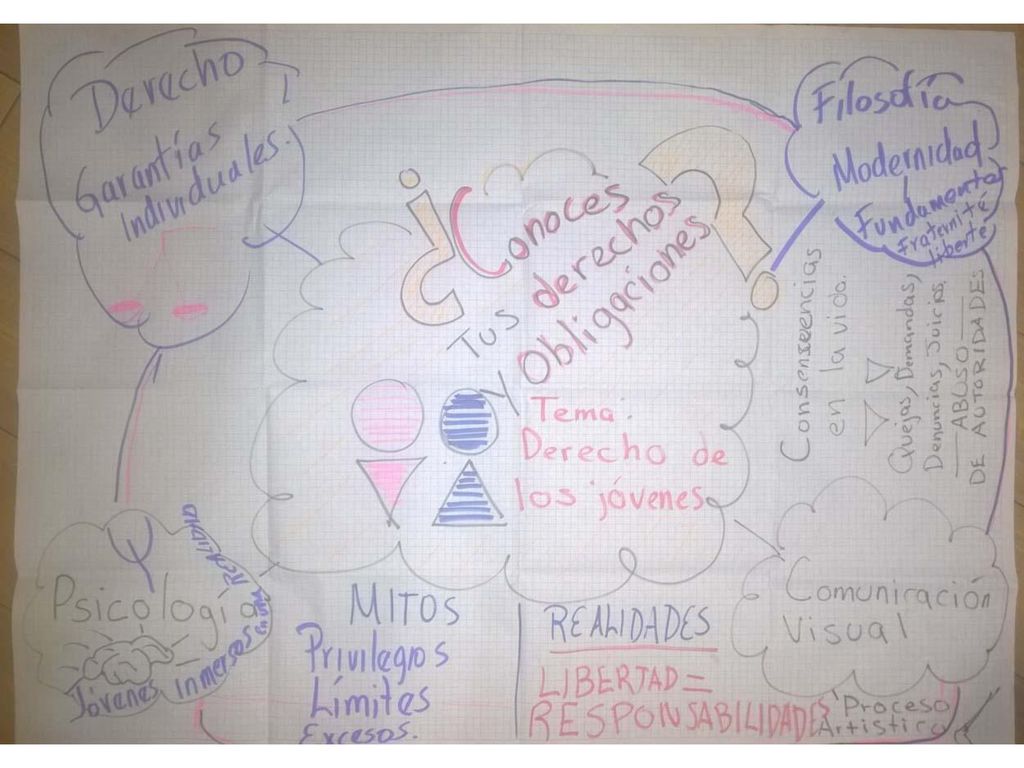 Derecho
Garantías
Individuales.
Filosofía
Modernidad
Fundamental
Fraternité
liberté
¿Conoces
Tus derechos
y Obligaciones?
Tema:
Derecho de
los jóvenes
en la vida.
Quejas, Demandas,
Denuncias, Juicios,
ABUSO
DE AUTORIDADES
Psicología
Jóvenes inmersos en una REALIDAD
MITOS
Privilegios
Límites
Excesos.
REALIDADES
LIBERTAD =
RESPONSABILIDADES
Comunicación
Visual
Proceso
Artístico